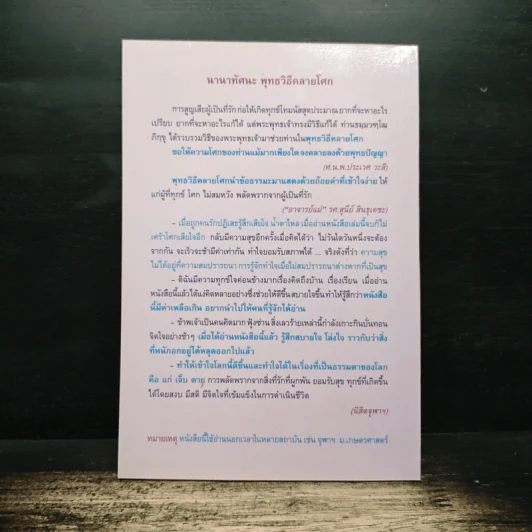 นานาทัศนะ พุทธวิธีคลายโศก
การสูญเสียผู้เป็นที่รัก ก่อให้เกิดทุกข์โทมนัสสุดประมาณ ยากที่จะหาอะไร
เปรียบ ยากที่จะหาอะไรแก้ได้ แต่พระพุทธเจ้าทรงมีวิธีแก้ได้ ท่านธมฺมวฑฺโฒ
ภิกฺขุ ได้รวบรวมวิธีของพระพุทธเจ้ามาช่วยท่านในพุทธวิธีคลายโศก
ขอให้ความโศกของท่านแม้มากเพียงใด จงคลายลงด้วยพุทธปัญญา
(ศ.น.พ.ประเวศ วะสี)
พุทธวิธีคลายโศกนำข้อธรรมะมาแสดงด้วยถ้อยคำที่เข้าใจง่าย ให้
แก่ผู้ที่ทุกข์ โศก ไม่สมหวัง พลัดพรากจากผู้เป็นที่รัก
("อาจารย์แม่" รศ.สุนีย์ สินธุเดชะ)
– เมื่อถูกคนรักปฏิเสธรู้สึกเสียใจ น้ำตาไหล เมื่ออ่านหนังสือเล่มนี้จบก็ไม่
เศร้าโศกเสียใจอีก กลับมีความสุขอีกครั้งเมื่อคิดได้ว่า ไม่วันใดวันหนึ่งจะต้อง
จากกัน จะเร็วจะช้ามีค่าเท่ากัน ทำใจยอมรับสภาพได้ ... จริงดังที่ว่า ความสุข
ไม่ได้อยู่ที่ความสมปรารถนา การรู้จักทำใจเมื่อไม่สมปรารถนาต่างหากที่เป็นสุข
– ดิฉันมีความทุกข์ใจค่อนข้างมากเรื่องคิดถึงบ้าน เรื่องเรียน เมื่ออ่าน
หนังสือนี้แล้วได้แง่คิดหลายอย่างซึ่งช่วยให้ดีขึ้นสบายใจขึ้นทำให้รู้สึกว่าหนังสือ
นี้มีค่าเหลือเกิน อยากนำไปให้คนที่รู้จักได้อ่าน
– ข้าพเจ้าเป็นคนคิดมาก ฟุ้งซ่าน สิ่งเลวร้ายเหล่านี้กำลังเกาะกินบั่นทอน
จิตใจอย่างช้าๆ เมื่อได้อ่านหนังสือนี้แล้ว รู้สึกสบายใจ โล่งใจ ราวกับว่าสิ่ง
ที่หนักอกอยู่ได้หลุดออกไปแล้ว
– ทำให้เข้าใจโลกนี้ดีขึ้นและทำใจได้ในเรื่องที่เป็นธรรมดาของโลก
คือ แก่ เจ็บ ตาย การพลัดพรากจากสิ่งที่รักที่ผูกพัน ยอมรับสุข ทุกข์ที่เกิดขึ้น
ได้โดยสงบ มีสติ มีจิตใจที่เข้มแข็งในการดำเนินชีวิต
(นิสิตจุฬาฯ)
หมายเหตุ หนังสือนี้ใช้อ่านนอกเวลาในหลายสถาบัน เช่น จุฬาฯ ม.เกษตรศาสตร์